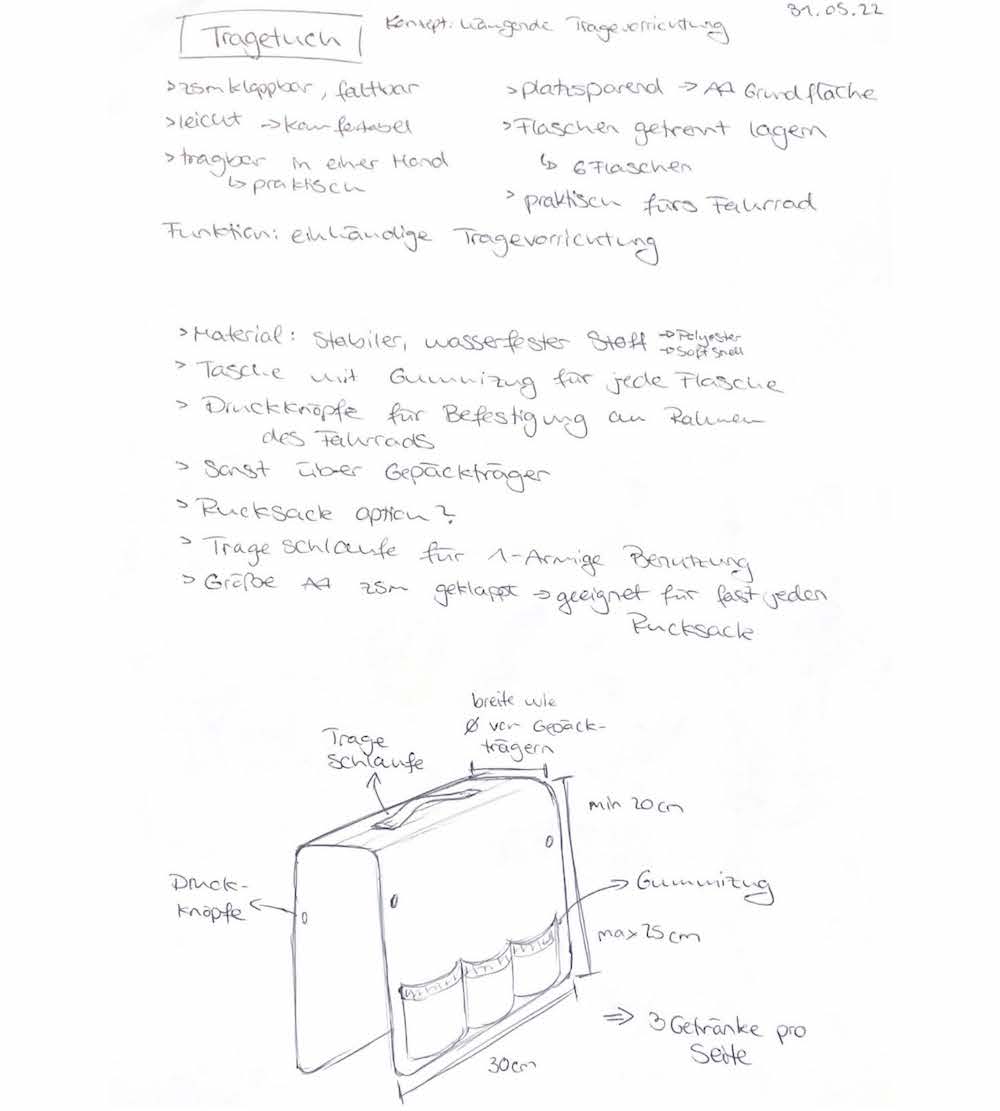 31.05.22
Tragetuch
Konzept: hängende Tragevorrichtung
> zsmklappbar, faltbar
> leicht → komfortabel
> tragbar in einer Hand
↳ praktisch
> platzsparend → A4 Grundfläche
> Flaschen getrennt lagern
↳ 6 Flaschen
> praktisch fürs Fahrrad
Funktion: einhändige Tragevorrichtung
> Material: Stabiler, wasserfester Stoff → Polyester
→ Softshell
> Tasche mit Gummizug für jede Flasche
> Druckknöpfe für Befestigung an Rahmen
des Fahrrads
> Sonst über Gepäckträger
> Rucksack option?
> Trage schlaufe für 1-Armige Benutzung
> Größe A4 zsm geklappt → geeignet für fast jeden
Rucksack
breite wie
Ø von Gepäck-
trägern
Trage
schlaufe
min 20cm
Druck-
knöpfe
Gummizug
max 25cm
⇒ 3 Getränke pro
Seite
30cm